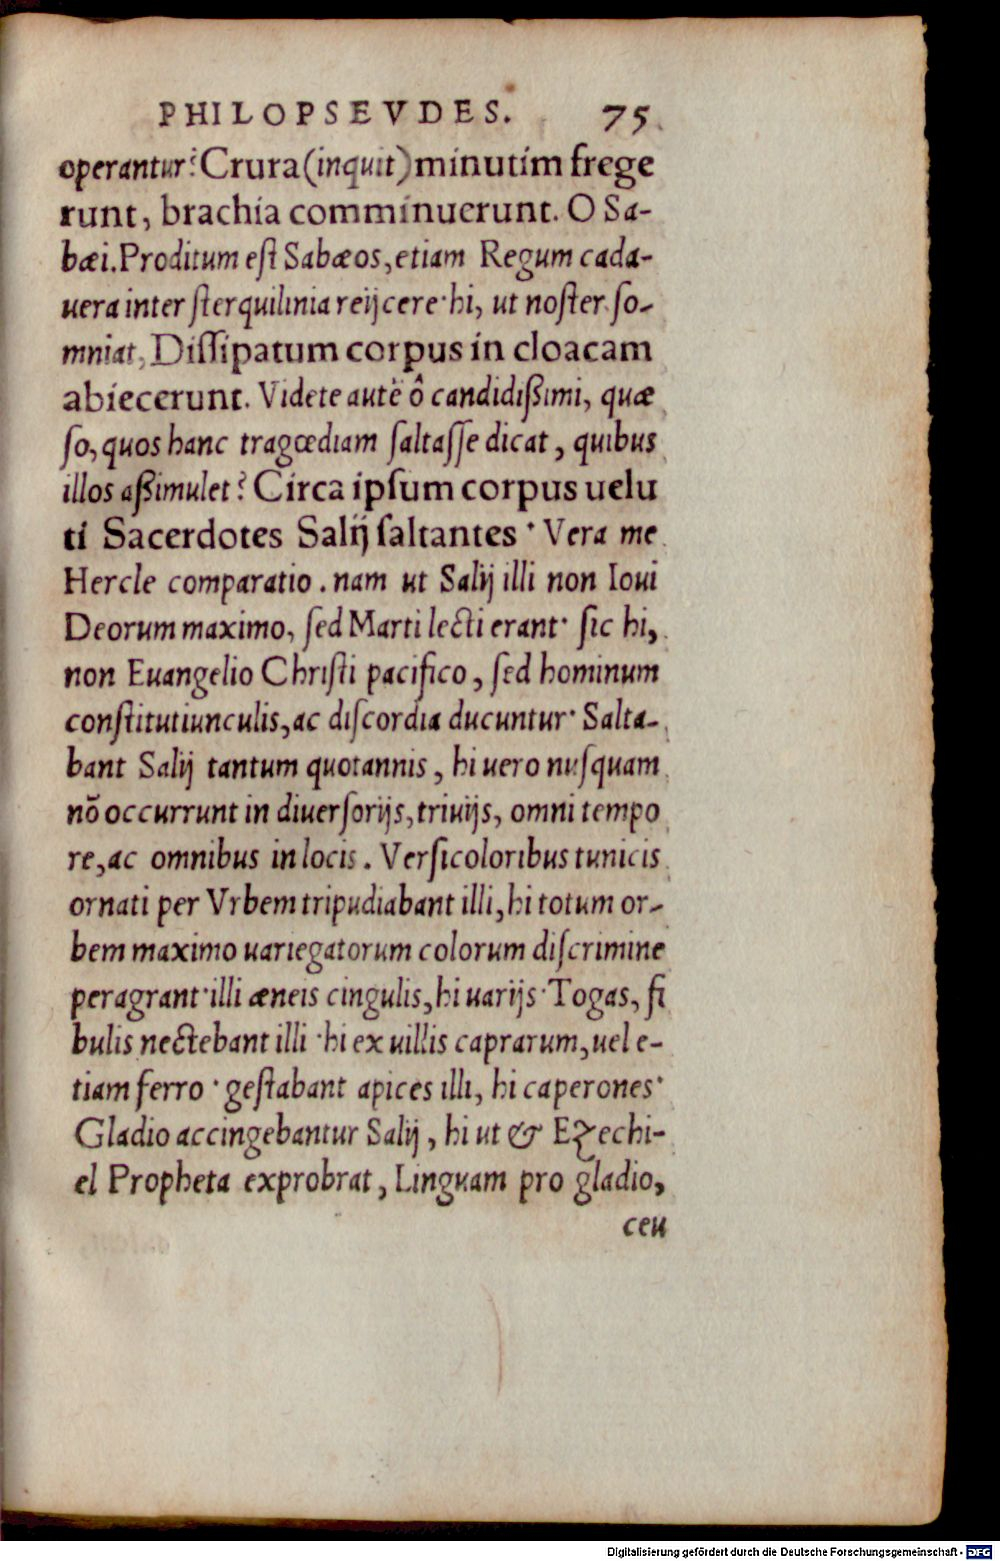 PHILOPSEVDES. 75
operantur? Crura (inquit) minutim frege
runt, brachia comminuerunt. O Sa-
bæi. Proditum eſt Sabæos, etiam Regum cada-
uera inter ſterquilinia reijcere· hi, ut noſter ſo-
mniat, Diſſipatum corpus in cloacam
abiecerunt. Videte autē ô candidißimi, quæ
ſo, quos hanc tragœdiam ſaltaſſe dicat, quibus
illos aßimulet? Circa ipſum corpus uelu
ti Sacerdotes Salij ſaltantes· Vera me
Hercle comparatio. nam ut Salij illi non Ioui
Deorum maximo, ſed Marti lecti erant· ſic hi,
non Euangelio Chriſti pacifico, ſed hominum
conſtitutiunculis, ac diſcordia ducuntur· Salta-
bant Salij tantum quotannis, hi uero nuſquam
nō occurrunt in diuerſorijs, triuijs, omni tempo
re, ac omnibus in locis. Verſicoloribus tunicis
ornati per Vrbem tripudiabant illi, hi totum or-
bem maximo uariegatorum colorum diſcrimine
peragrant· illi æneis cingulis, hi uarijs· Togas, fi
bulis nectebant illi· hi ex uillis caprarum, uel e-
tiam ferro· geſtabant apices illi, hi caperones·
Gladio accingebantur Salij, hi ut & Ezechi-
el Propheta exprobrat, Linguam pro gladio,
ceu
Digitalisierung gefördert durch die Deutsche Forschungsgemeinschaft - DFG